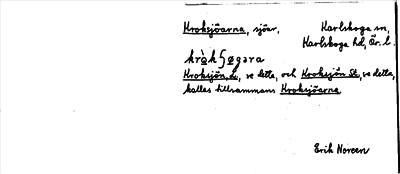 Kroksjöarna, sjöar, Karlskoga sn,
Karlskoga hd, Ör. l.
Kroksjön, L., se detta, och Kroksjön St., se detta,
kallas tillsammans Kroksjöarna
Erik Noreen